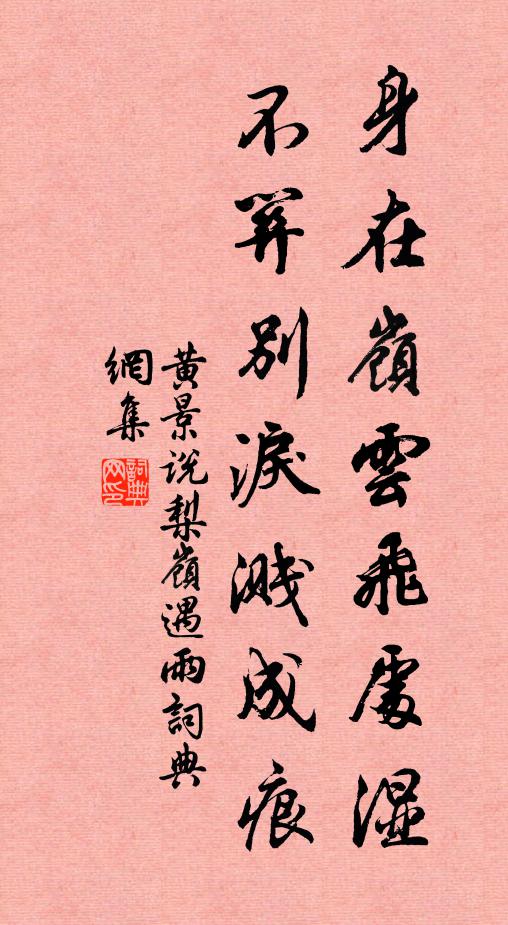 身在嶺雲飛處湿
不關別淚濺成痕
黄景说梨嶺遇雨詞典
網集
詞典
网印